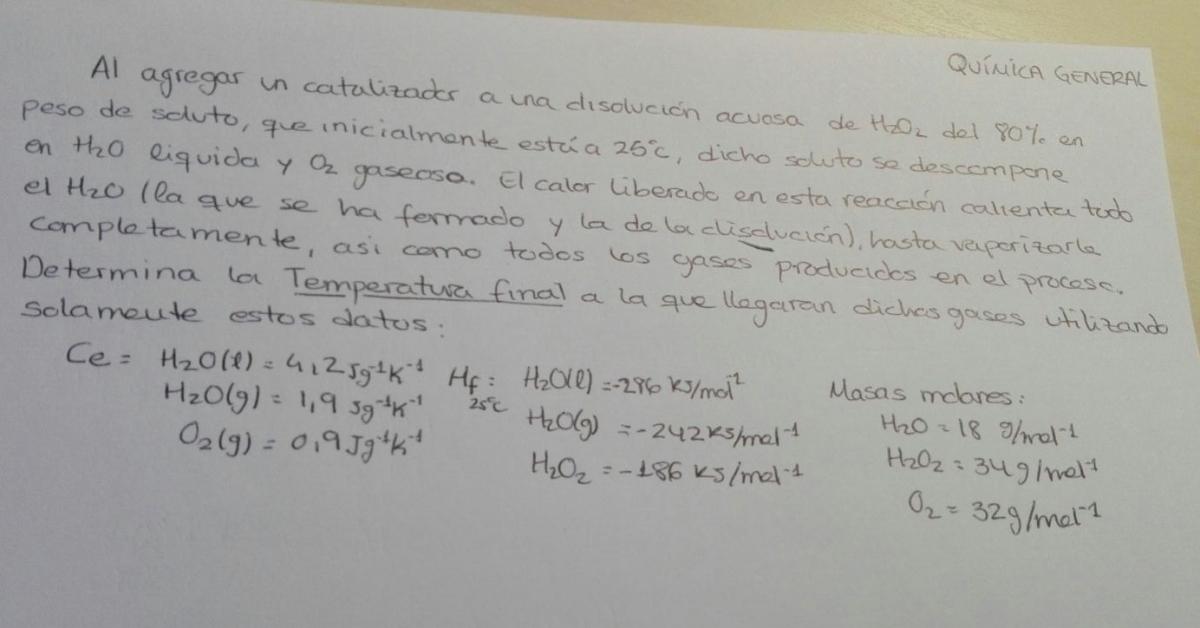 QUÍMICA GENERAL
Al agregar un catalizador a una disolución acuosa de H₂O₂ del 80% en
peso de soluto, que inicialmente está a 25°C, dicho soluto se descompone
en H₂O líquida y O₂ gaseosa. El calor liberado en esta reacción calienta todo
el H₂O (la que se ha formado y la de la disolución), hasta vaporizarla
completamente, así como todos los gases producidos en el proceso.
Determina la Temperatura final a la que llegaran dichos gases utilizando
solamente estos datos:
Ce = H₂O(l) = 4,2 Jg⁻¹K⁻¹ Hf: H₂O(l) = -286 KJ/mol⁻¹ Masas molares:
H₂O(g) = 1,9 Jg⁻¹K⁻¹ 25°C H₂O(g) = -242 KJ/mol⁻¹ H₂O = 18 g/mol⁻¹
O₂(g) = 0,9 Jg⁻¹K⁻¹ H₂O₂ = -186 KJ/mol⁻¹ H₂O₂ = 34 g/mol⁻¹
O₂ = 32 g/mol⁻¹